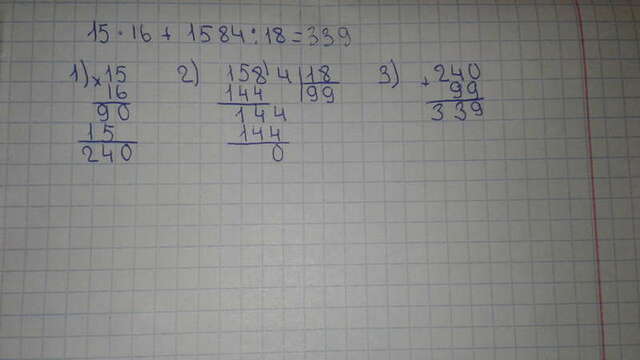 15 · 16 + 1584 : 18 = 339
1) × 15
16
90
15
240
2) 158'4 | 18
144 | 99
144
144
0
3) + 240
99
339